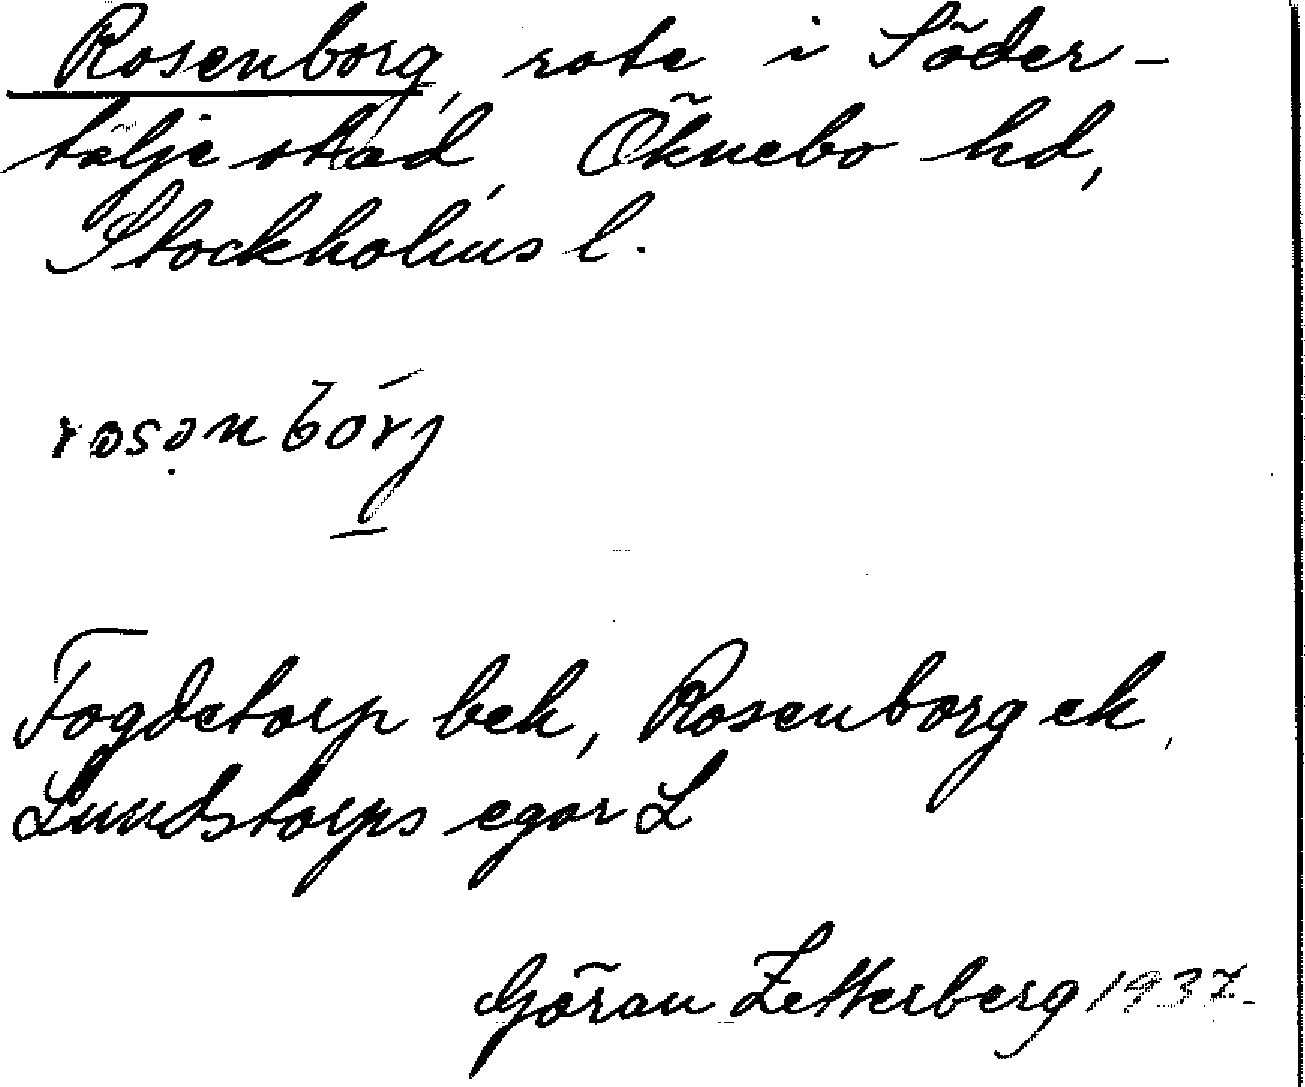 Rosenborg, rote i Söder-
tälje stad, Öknebo hd,
Stockholms l.
rosənbórj
Fogdetorp bek, Rosenborg ek,
Lundstorps egor L
Göran Zetterberg 1937.